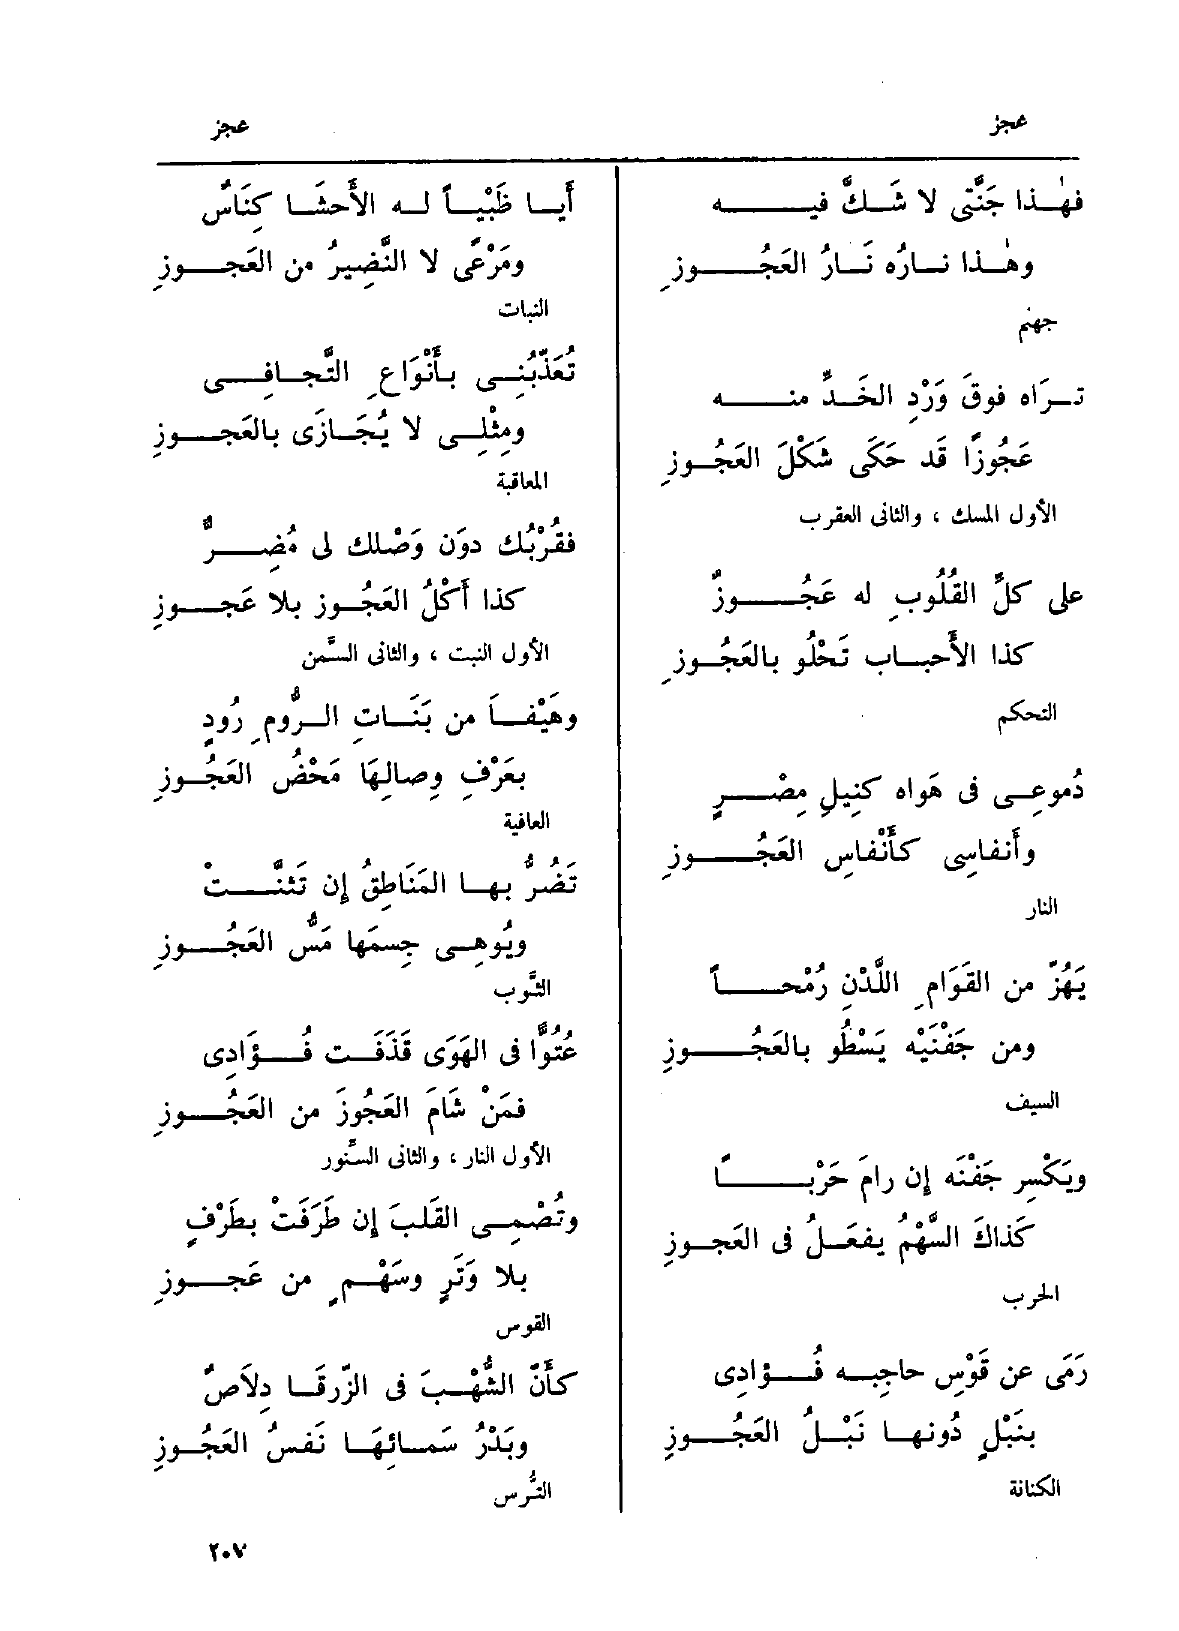 عجز
عجز
فهٰذا جَنَّتِى لا شَكَّ فيه
وهٰذا نارُه نَارُ العَجُوزِ
جهنم
تَراه فوقَ وَرْدِ الخَدِّ منه
عَجُوزًا قد حَكَى شَكْلَ العَجُوزِ
الأول المسك ، والثانى العقرب
على كلِّ القُلُوبِ له عَجُوزٌ
كذا الأَحباب تَحْلُو بالعَجُوزِ
التحكم
دُموعِى فى هَواه كنِيلِ مِصْرٍ
وأَنفاسِى كأَنْفاسِ العَجُوزِ
النار
يَهُزّ من القَوَامِ اللَّدْنِ رُمْحاً
ومن جَفْنَيْه يَسْطُو بالعَجُوزِ
السيف
ويَكْسِر جَفْنَه إِن رامَ حَرْبًا
كَذاكَ السَّهْمُ يفعَلُ فى العَجوزِ
الحرب
رَمَى عن قَوْسِ حاجِبِه فُؤادِى
بنَبْلٍ دُونها نَبْلُ العَجُوزِ
الكنانة
أَيا ظَبْياً له الأَحشَا كِنَاسٌ
ومَرْعًى لا النَّضِيرُ من العَجوزِ
النبات
تُعَذِّبُنِى بأَنْوَاعِ التَّجافِى
ومِثْلِى لا يُجَازَى بالعَجوزِ
المعاقبة
فقُرْبُك دوَن وَصْلك لى مُضِرٌّ
كذا أَكْلُ العَجُوزِ بلا عَجوزِ
الأول النبت ، والثانى السَّمن
وهَيْفَا من بَنَاتِ الرُّومِ رُودٍ
بعَرْفِ وِصالِهَا مَحْضُ العَجُوزِ
العافية
تَضُرُّ بها المَناطِقُ إِن تَثنَّتْ
ويُوهِى جِسمَها مَسُّ العَجُوزِ
الثَّوب
عُتُوًّا فى الهَوَى قَذَفَت فُؤَادِى
فمَنْ شَامَ العَجُوزَ من العَجُوزِ
الأول النار ، والثانى السِّنور
وتُصْمِى القَلبَ إِن طَرَفَتْ بطَرْفٍ
بلا وَتَرٍ وسَهْمٍ من عَجوزِ
القوس
كأَنّ الشُّهْبَ فى الزّرقَا دِلاَصٌ
وبَدْرُ سَمائِهَا نَفسُ العَجُوزِ
التُّرس
٢٠٧